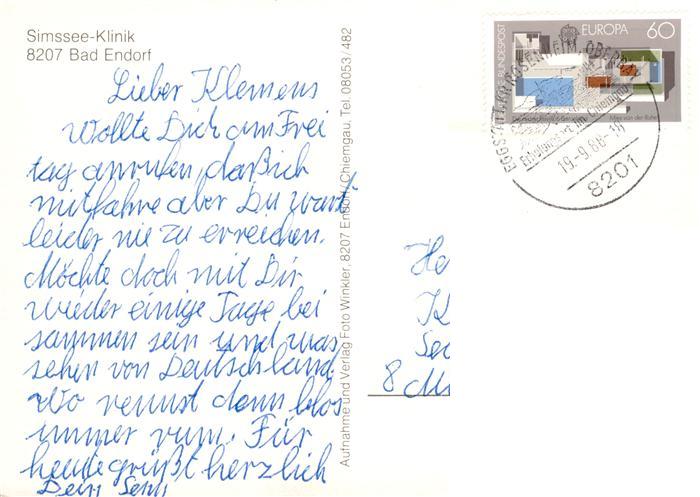 Simssee-Klinik
8207 Bad Endorf
Lieber Klemens
Wollte Dich am Frei
tag anrufen, daß ich
mitfahre aber Du warst
leider nie zu erreichen.
Möchte doch mit Dir
wieder einige Tage bei
sammen sein und was
sehen von Deutschland.
Wo rennst denn blos
immer rum. Für
heute grüßt herzlich
Dein
Aufnahme und Verlag Foto Winkler, 8207 Endorf/Chiemgau, Tel. 08053/482
DEUTSCHE BUNDESPOST
EUROPA 60
Mies van der Rohe
EGGSTÄTT KR ROSENHEIM, OBERBAY
Erholungsort im Chiemgau
19.-9.88-14
8201
He
K
See
8 Mü